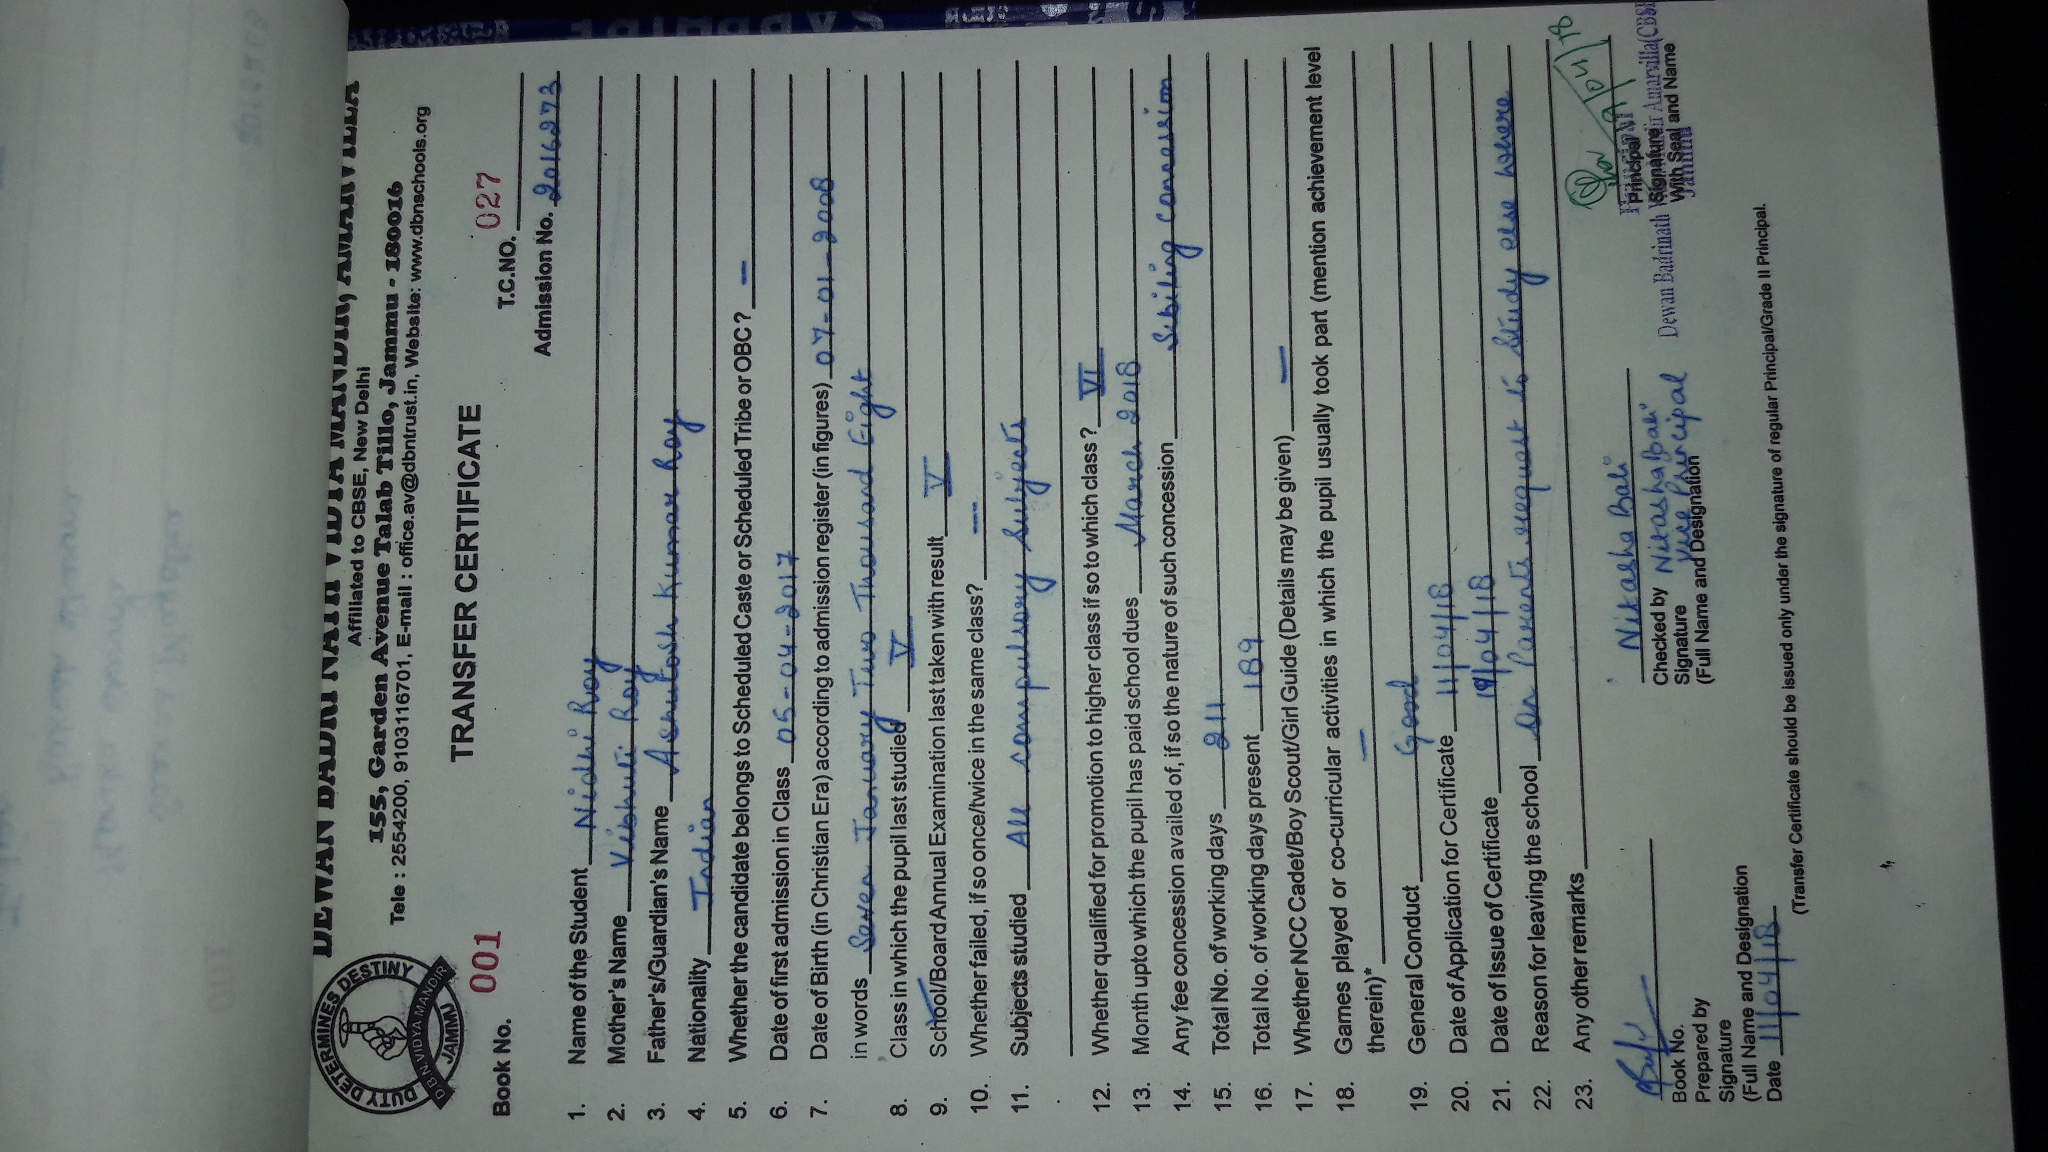 DEWAN BADRI NATH VIDYA MANDIR, AMARVILLA
Affiliated to CBSE, New Delhi
155, Garden Avenue Talab Tillo, Jammu - 180016
Tele : 2554200, 9103116701, E-mail : office.av@dbntrust.in, Website: www.dbnschools.org
DUTY DETERMINES DESTINY
D.B.N. VIDYA MANDIR
JAMMU
TRANSFER CERTIFICATE
Book No. 001 T.C.NO. 027
Admission No. 2016273
1. Name of the Student Nidhi Roy
2. Mother's Name Vibhuti Roy
3. Father's/Guardian's Name Ashutosh Kumar Roy
4. Nationality Indian
5. Whether the candidate belongs to Scheduled Caste or Scheduled Tribe or OBC? —
6. Date of first admission in Class 05-04-2017
7. Date of Birth (in Christian Era) according to admission register (in figures) 07-01-2008
in words Seven January Two Thousand Eight
8. Class in which the pupil last studied V
9. School/Board Annual Examination last taken with result V
10. Whether failed, if so once/twice in the same class? —
11. Subjects studied All compulsory Subjects
12. Whether qualified for promotion to higher class if so to which class? VI
13. Month upto which the pupil has paid school dues March 2018
14. Any fee concession availed of, if so the nature of such concession Sibling concession
15. Total No. of working days 211
16. Total No. of working days present 189
17. Whether NCC Cadet/Boy Scout/Girl Guide (Details may be given) —
18. Games played or co-curricular activities in which the pupil usually took part (mention achievement level
therein)* —
19. General Conduct Good
20. Date of Application for Certificate 11/04/18
21. Date of Issue of Certificate 19/04/18
22. Reason for leaving the school On Parents request to Study else where
23. Any other remarks
Book No.
Prepared by
Signature
(Full Name and Designation
Date 11/04/18
Nitasha Bali
Checked by Nitasha Bali
Signature Vice Principal
(Full Name and Designation
Principal
Principal
Dewan Badrinath Vidya Mandir Amarvilla(CBSE
Signature
With Seal and Name
Jammu
(Transfer Certificate should be issued only under the signature of regular Principal/Grade II Principal.